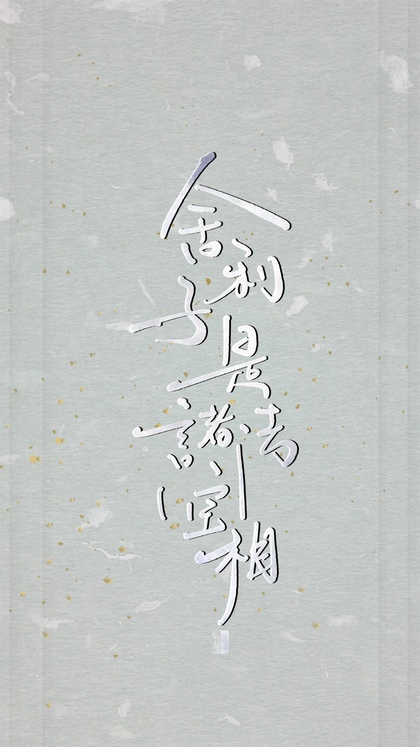 舍利子是諸法空相